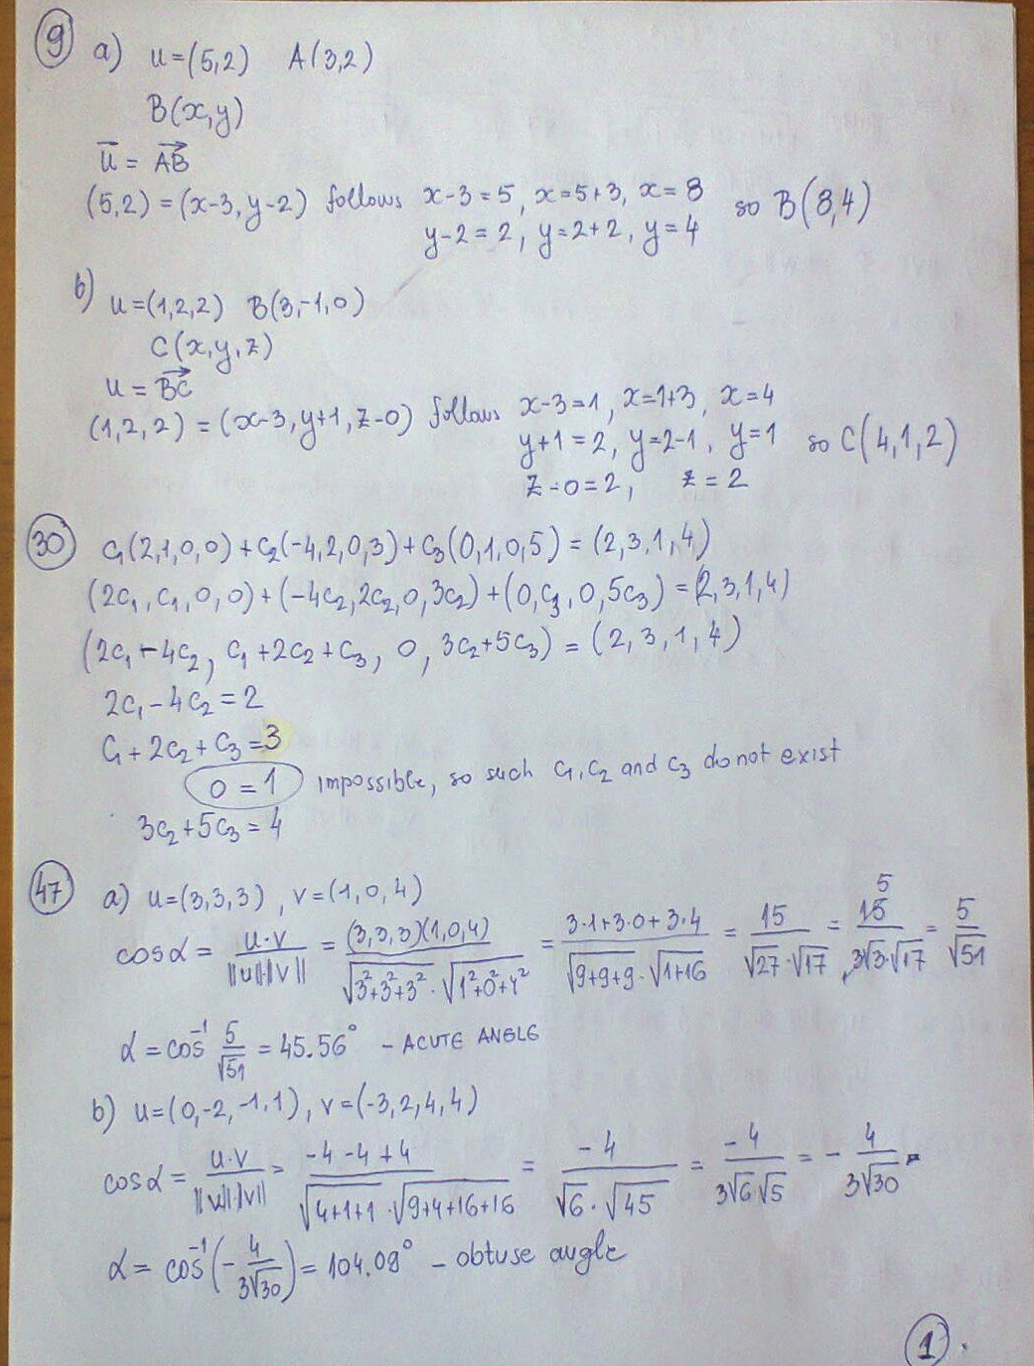 9 a) u=(5,2) A(3,2)
B(x,y)
u⃗ = AB⃗
(5,2) = (x-3, y-2) follows x-3=5, x=5+3, x=8
y-2=2, y=2+2, y=4 so B(8,4)
b) u=(1,2,2) B(3,-1,0)
C(x,y,z)
u = BC⃗
(1,2,2) = (x-3, y+1, z-0) follows x-3=1, x=1+3, x=4
y+1=2, y=2-1, y=1 so C(4,1,2)
z-0=2, z=2
30 c₁(2,1,0,0)+c₂(-4,2,0,3)+c₃(0,1,0,5)=(2,3,1,4)
(2c₁,c₁,0,0)+(-4c₂,2c₂,0,3c₂)+(0,c₃,0,5c₃)=(2,3,1,4)
(2c₁-4c₂, c₁+2c₂+c₃, 0, 3c₂+5c₃) = (2,3,1,4)
2c₁-4c₂=2
c₁+2c₂+c₃=3
0=1 impossible, so such c₁,c₂ and c₃ do not exist
3c₂+5c₃=4
47 a) u=(3,3,3), v=(1,0,4)
cosα = u·v/||u||·||v|| = (3,3,3)(1,0,4)/√(3²+3²+3²)·√(1²+0²+4²) = 3·1+3·0+3·4/√(9+9+9)·√(1+16) = 15/√27·√17 = 15 5/3√3·√17 = 5/√51
α = cos⁻¹ 5/√51 = 45.56° - ACUTE ANGLE
b) u=(0,-2,-1,1), v=(-3,2,4,4)
cosα = u·v/||u||·||v|| = -4-4+4/√(4+1+1)·√(9+4+16+16) = -4/√6·√45 = -4/3√6√5 = -4/3√30
α = cos⁻¹(-4/3√30) = 104.08° - obtuse angle
1.